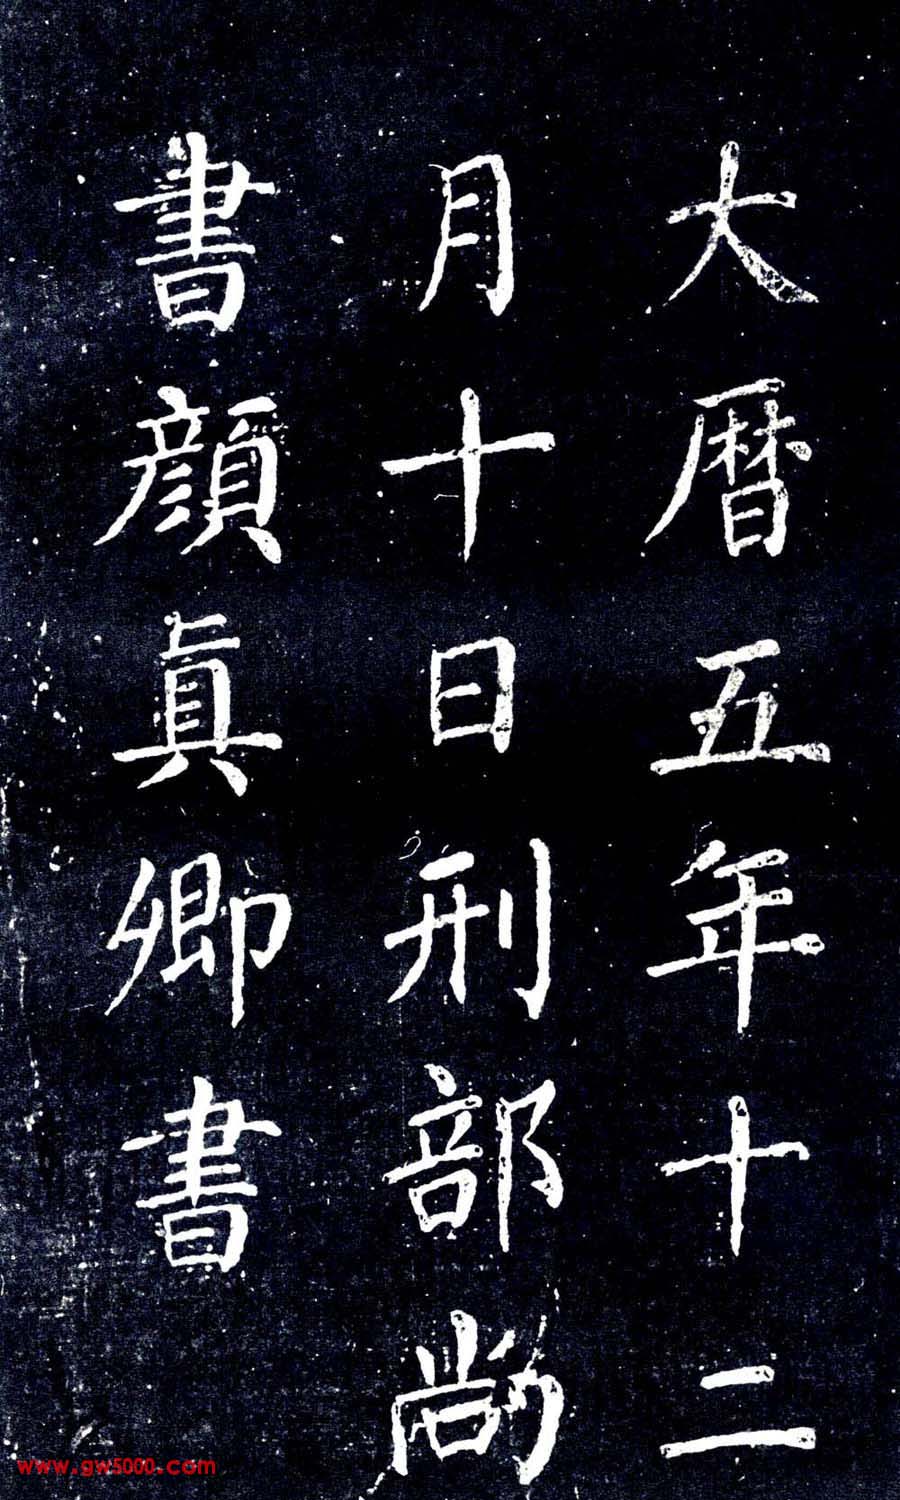 大暦五年十二
月十日刑部尚
書顔真卿書
www.gw5000.com